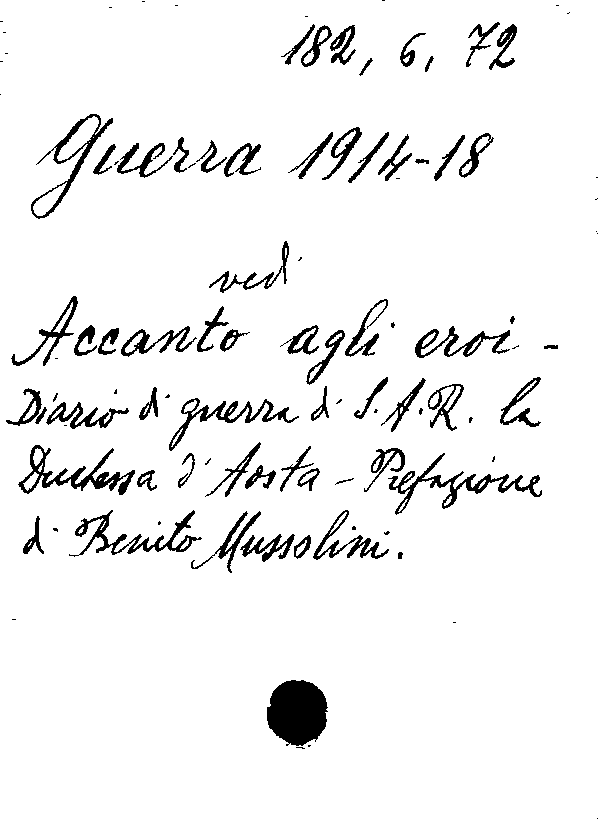 182, 6, 72
Guerra 1914-18
vedi
Accanto agli eroi -
Diario di guerra di S.A.R. la
Duchessa d'Aosta - Prefazione
di Benito Mussolini.